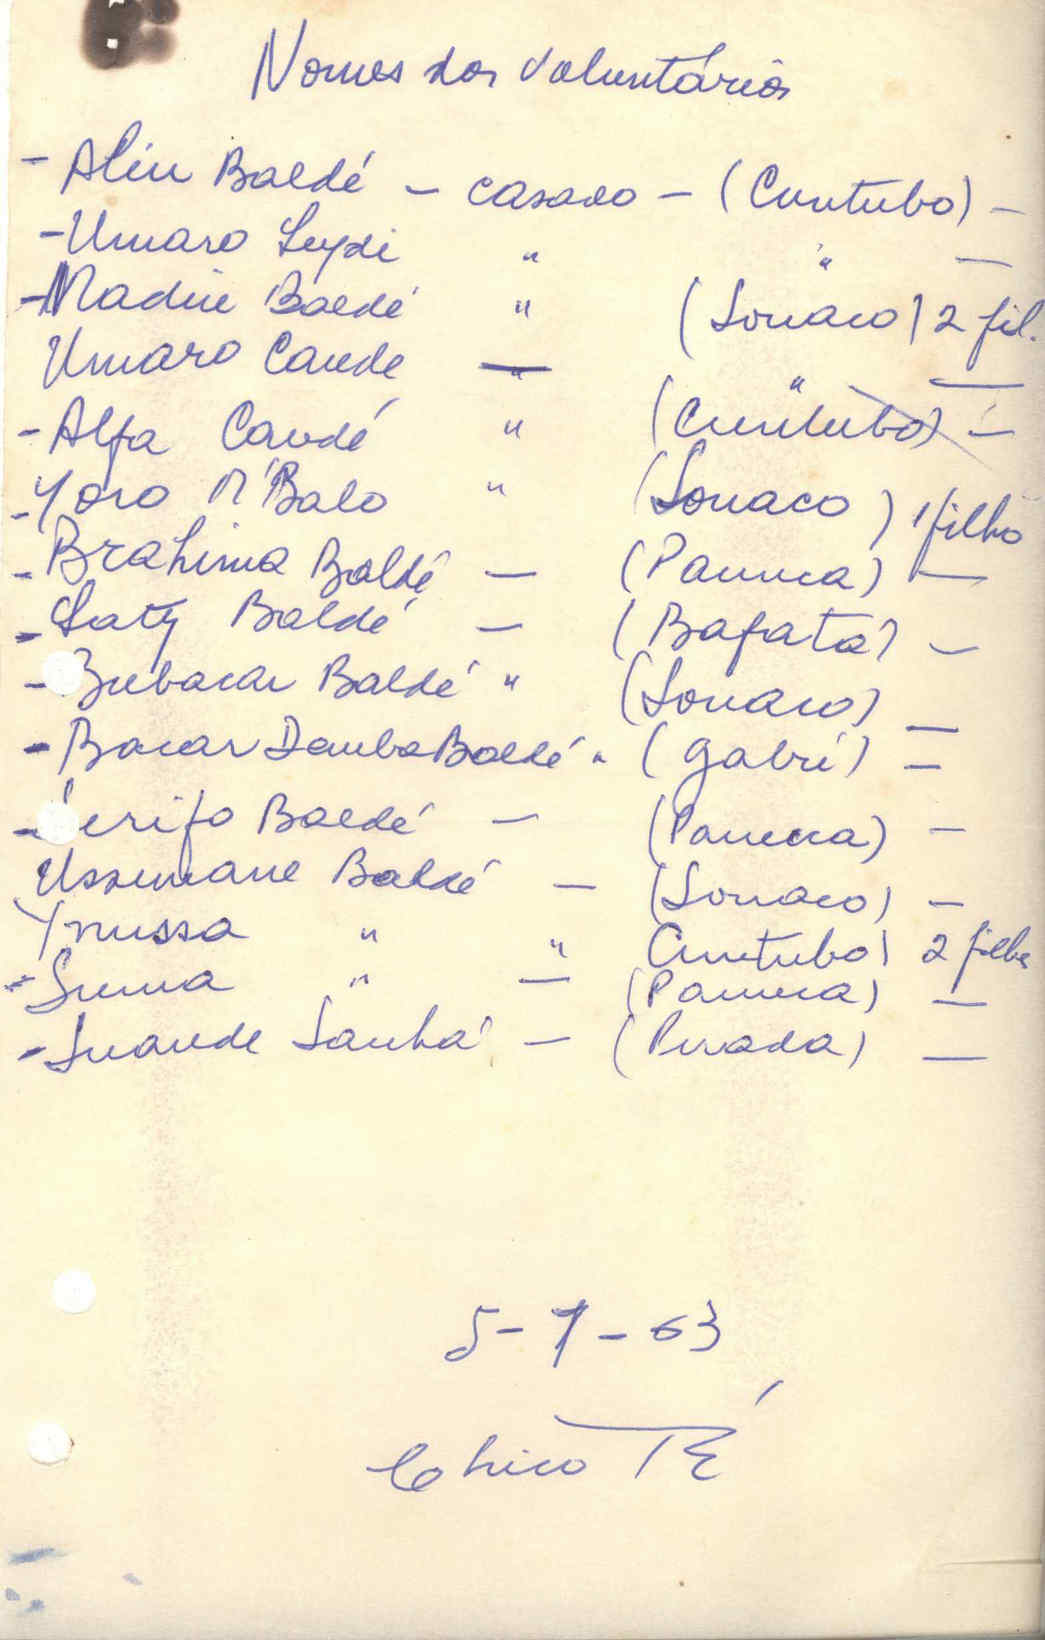 Nomes dos Voluntários
- Aliu Baldé - casado - (Cuntubo) -
- Umaro Seydi " " -
- Madiu Baldé " (Sonaco) 2 fil.
Umaro Cande — " " —
- Alfa Candé " (Cuntubo) -
- Yoro M'Balo " (Sonaco) 1 filho
- Brahima Baldé - (Paunca) -
- Saty Baldé - (Bafatá) -
- Bubacar Baldé " (Sonaco) -
- Bacar Demba Baldé " (Gabú) -
- Serifo Baldé - (Paunca) -
Ussumane Baldé - (Sonaco) -
Ynussa " " Cuntubo) 2 filhs
- Suma " - (Paunca) -
- Suande Sanhá - (Pirada) -
5-7-63
Chico Té